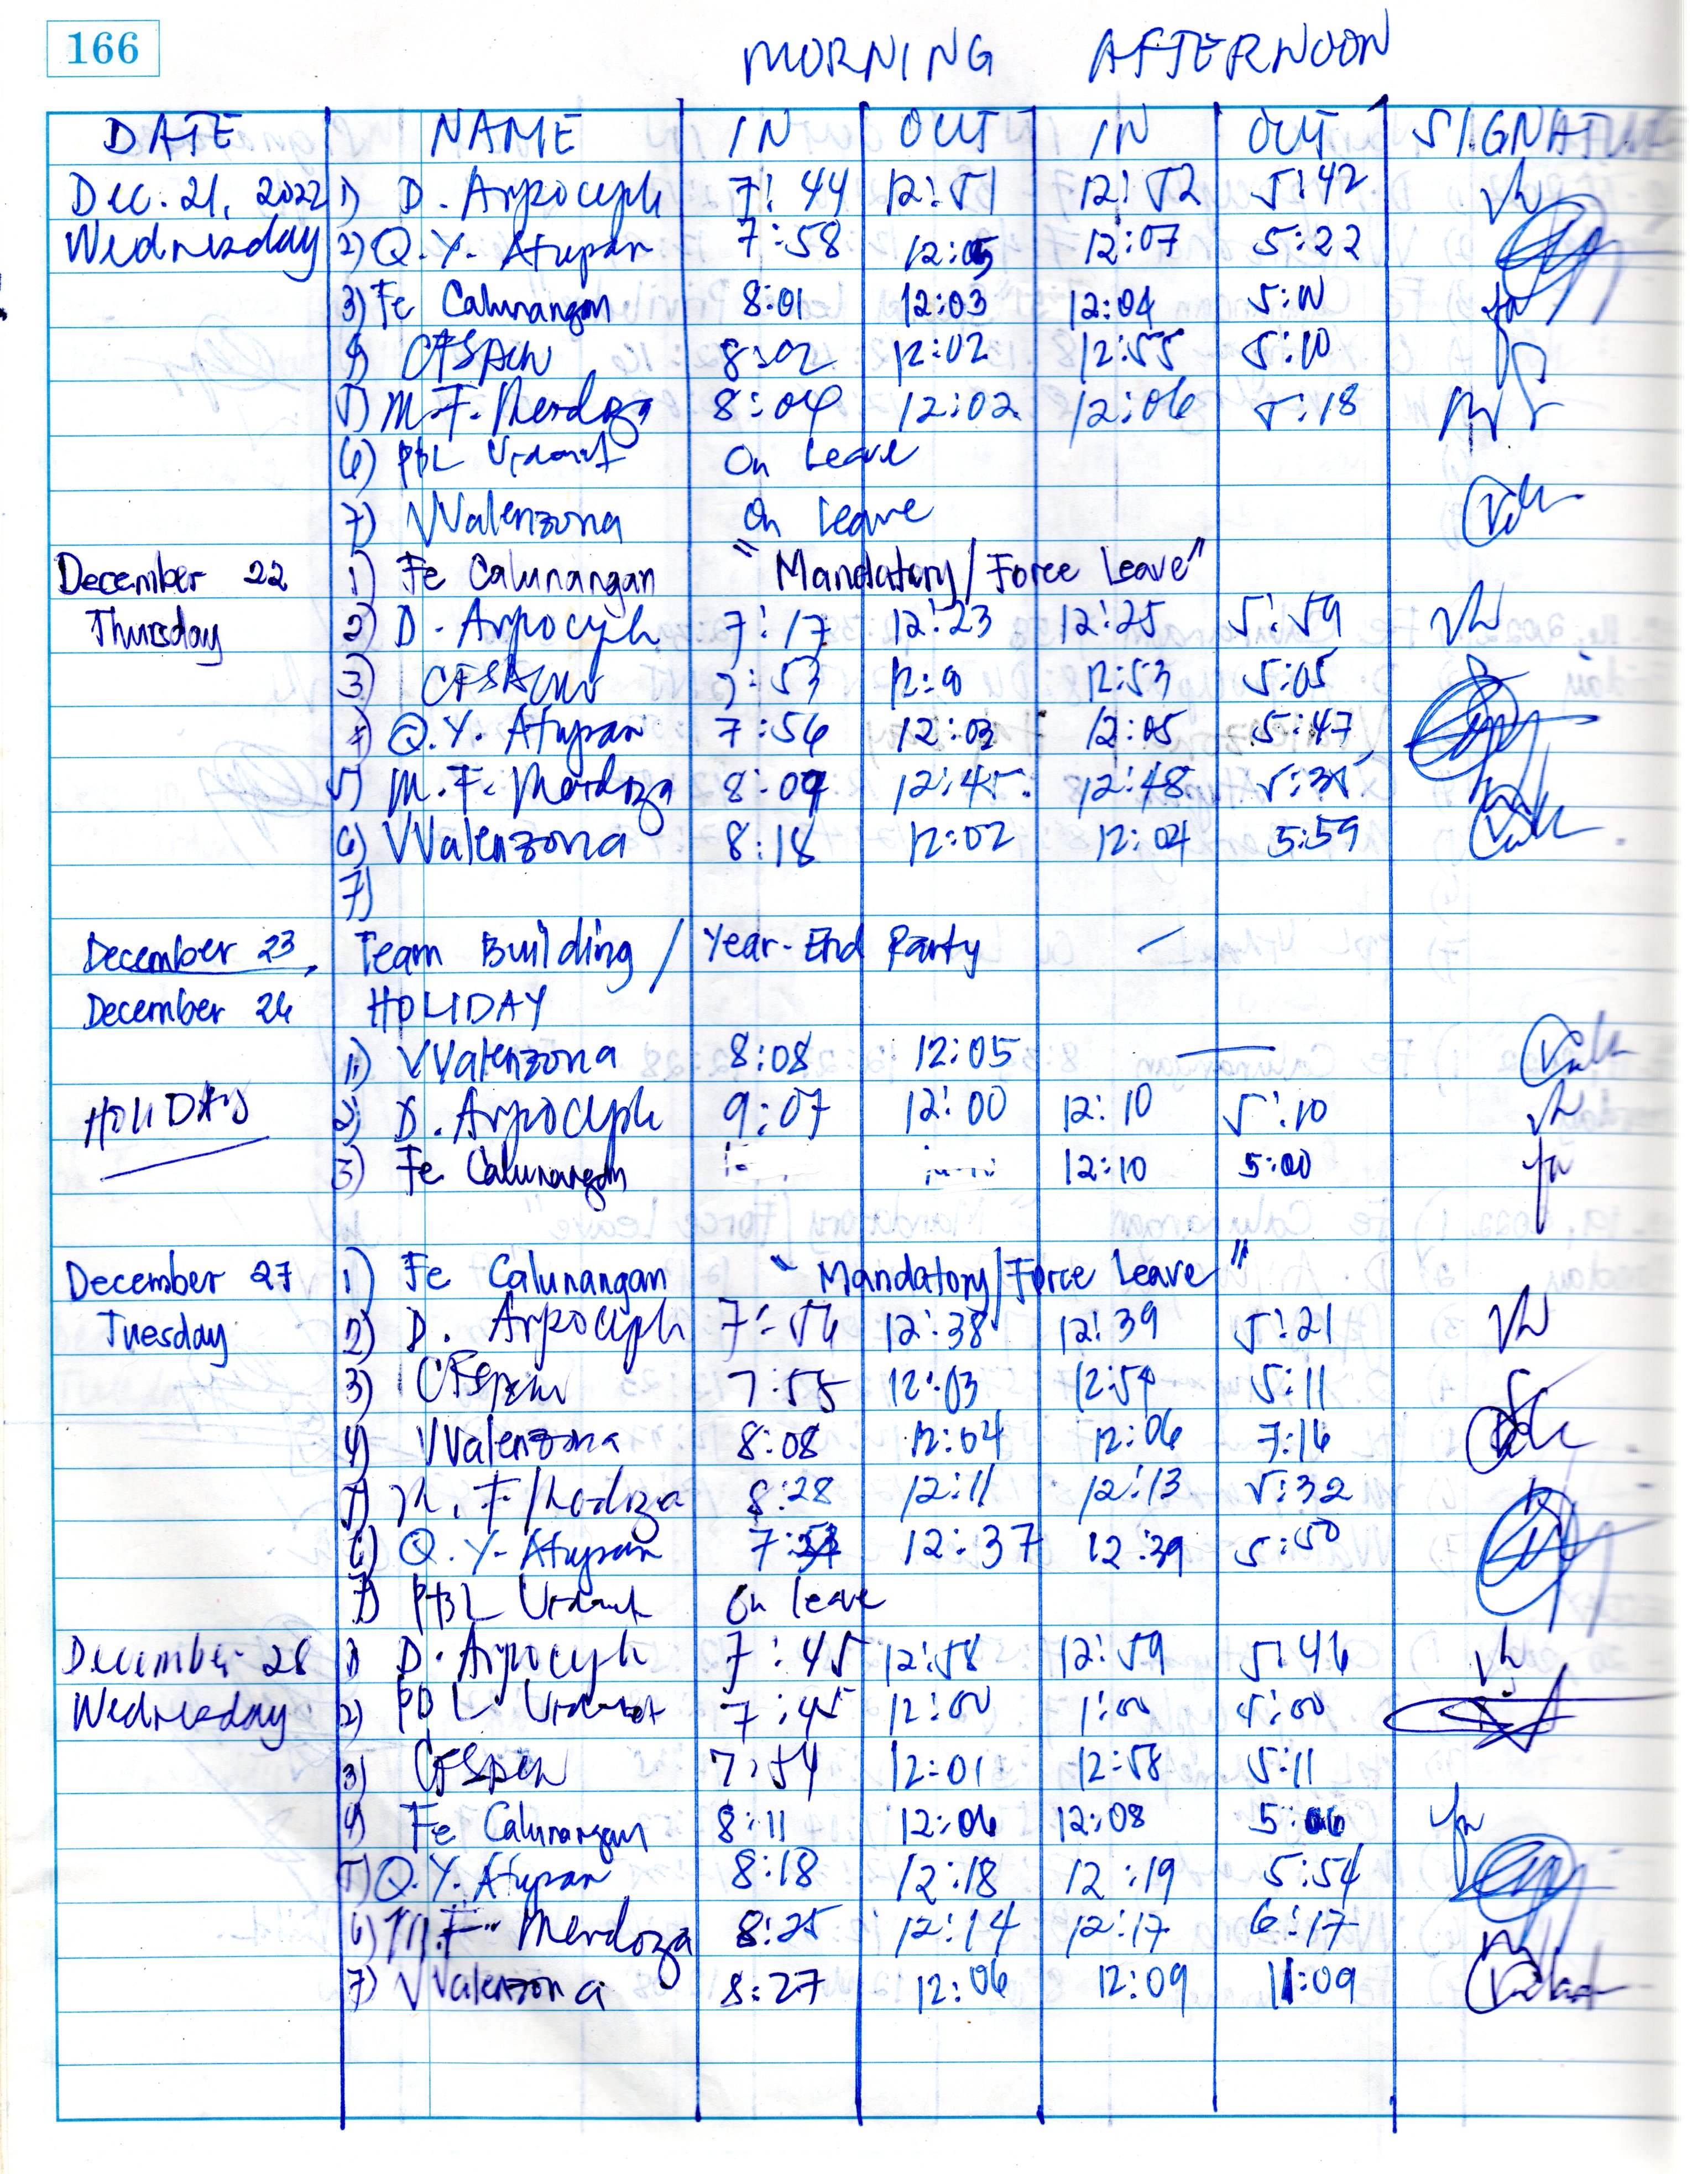 166
MORNING AFTERNOON
DATE NAME IN OUT IN OUT SIGNATURE
Dec. 21, 2022 1) D. Arpoceph 7:44 12:51 12:52 5:42
Wednesday 2) Q. Y. Atupan 7:58 12:05 12:07 5:22
3) Fe Calunangan 8:01 12:03 12:04
4) 8:02 12:02 12:55 5:10
5) M. F. Mendoza 8:04 12:02 12:06 5:18
6) PBL On Leave
7) VValenzona On Leave
December 22 1) Fe Calunangan "Mandatory/Force Leave"
Thursday 2) D. Arpoceph 7:17 12:23 12:25 5:59
3) 7:53 12:53 5:05
4) Q. Y. Atupan 7:56 12:03 12:05 5:47
5) M. F. Mendoza 8:09 12:45 12:48
6) VValenzona 8:18 12:02 12:04 5:59
7)
December 23, Team Building / Year-End Party
December 26 HOLIDAY
1) VValenzona 8:08 12:05 —
HOLIDAY 2) D. Arpoceph 9:07 12:00 12:10 5:10
3) Fe Calunangan 12:10 5:00
December 27 1) Fe Calunangan "Mandatory/Force Leave"
Tuesday 2) D. Arpoceph 7:56 12:38 12:39 5:21
3) 7:55 12:03 12:54 5:11
4) VValenzona 8:08 12:04 12:06 7:16
5) M. F. Mendoza 8:28 12:11 12:13 5:32
6) Q. Y. Atupan 12:37 12:39 5:50
7) PBL On leave
December 28 1) D. Arpoceph 7:45 12:58 12:59 5:46
Wednesday 2) PBL 7:45 12:00 1:00 5:00
3) 7:54 12:01 12:58 5:11
4) Fe Calunangan 8:11 12:06 12:08 5:06
5) Q. Y. Atupan 8:18 12:18 12:19 5:54
6) M. F. Mendoza 8:25 12:14 12:17 6:17
7) VValenzona 8:27 12:06 12:09 11:09